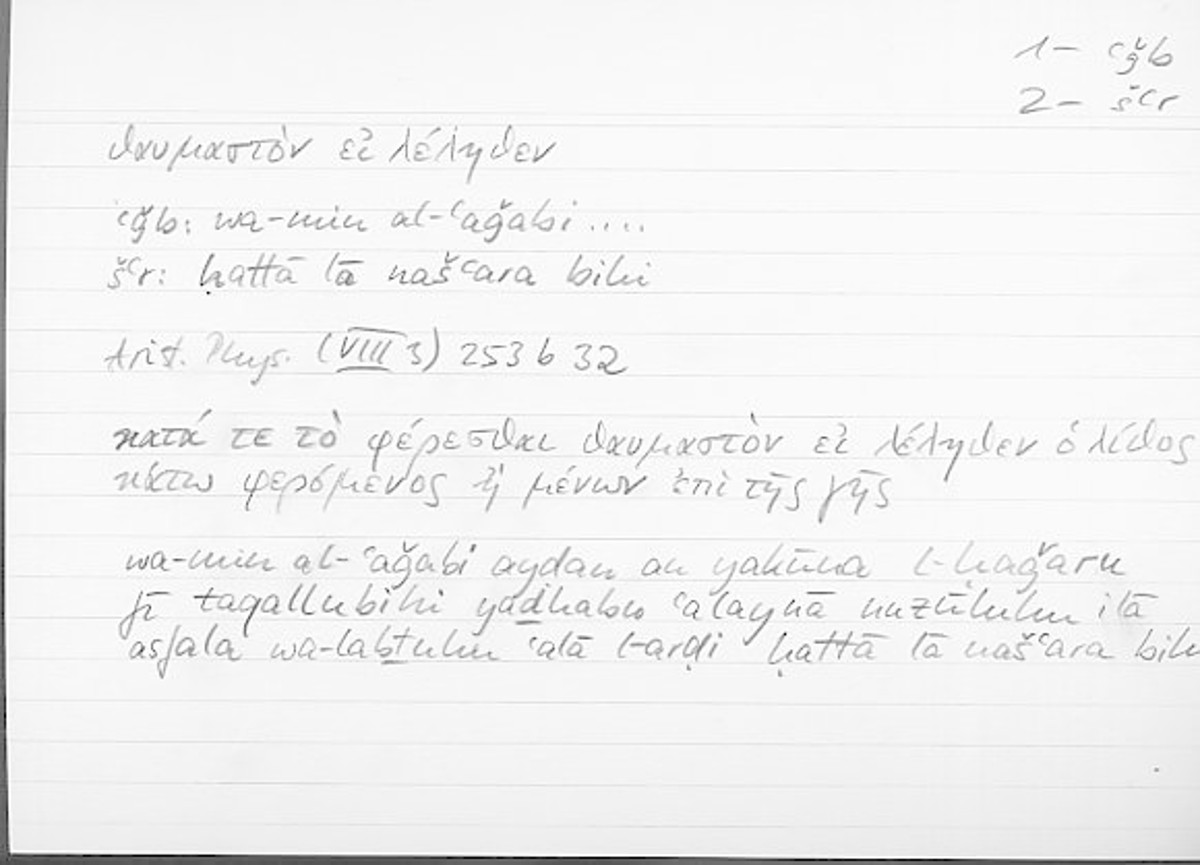 1- ʿǧb
2- šʿr
θαυμαστὸν εἰ λέληθεν
ʿǧb: wa-min al-ʿaǧabi ....
šʿr: ḥattā lā našʿara bihi
Arist. Phys. (VIII 3) 253 b 32
κατά τε τὸ φέρεσθαι θαυμαστὸν εἰ λέληθεν ὁ λίθος
κάτω φερόμενος ἢ μένων ἐπὶ τῆς γῆς
wa-min al-ʿaǧabi aydan an yakūna l-ḥaǧaru
fī taqallubihi yaḏhabu ʿalaynā nuzūluhu ilā
asfala wa-labṯuhu ʿalā l-arḍi ḥattā lā našʿara bihi